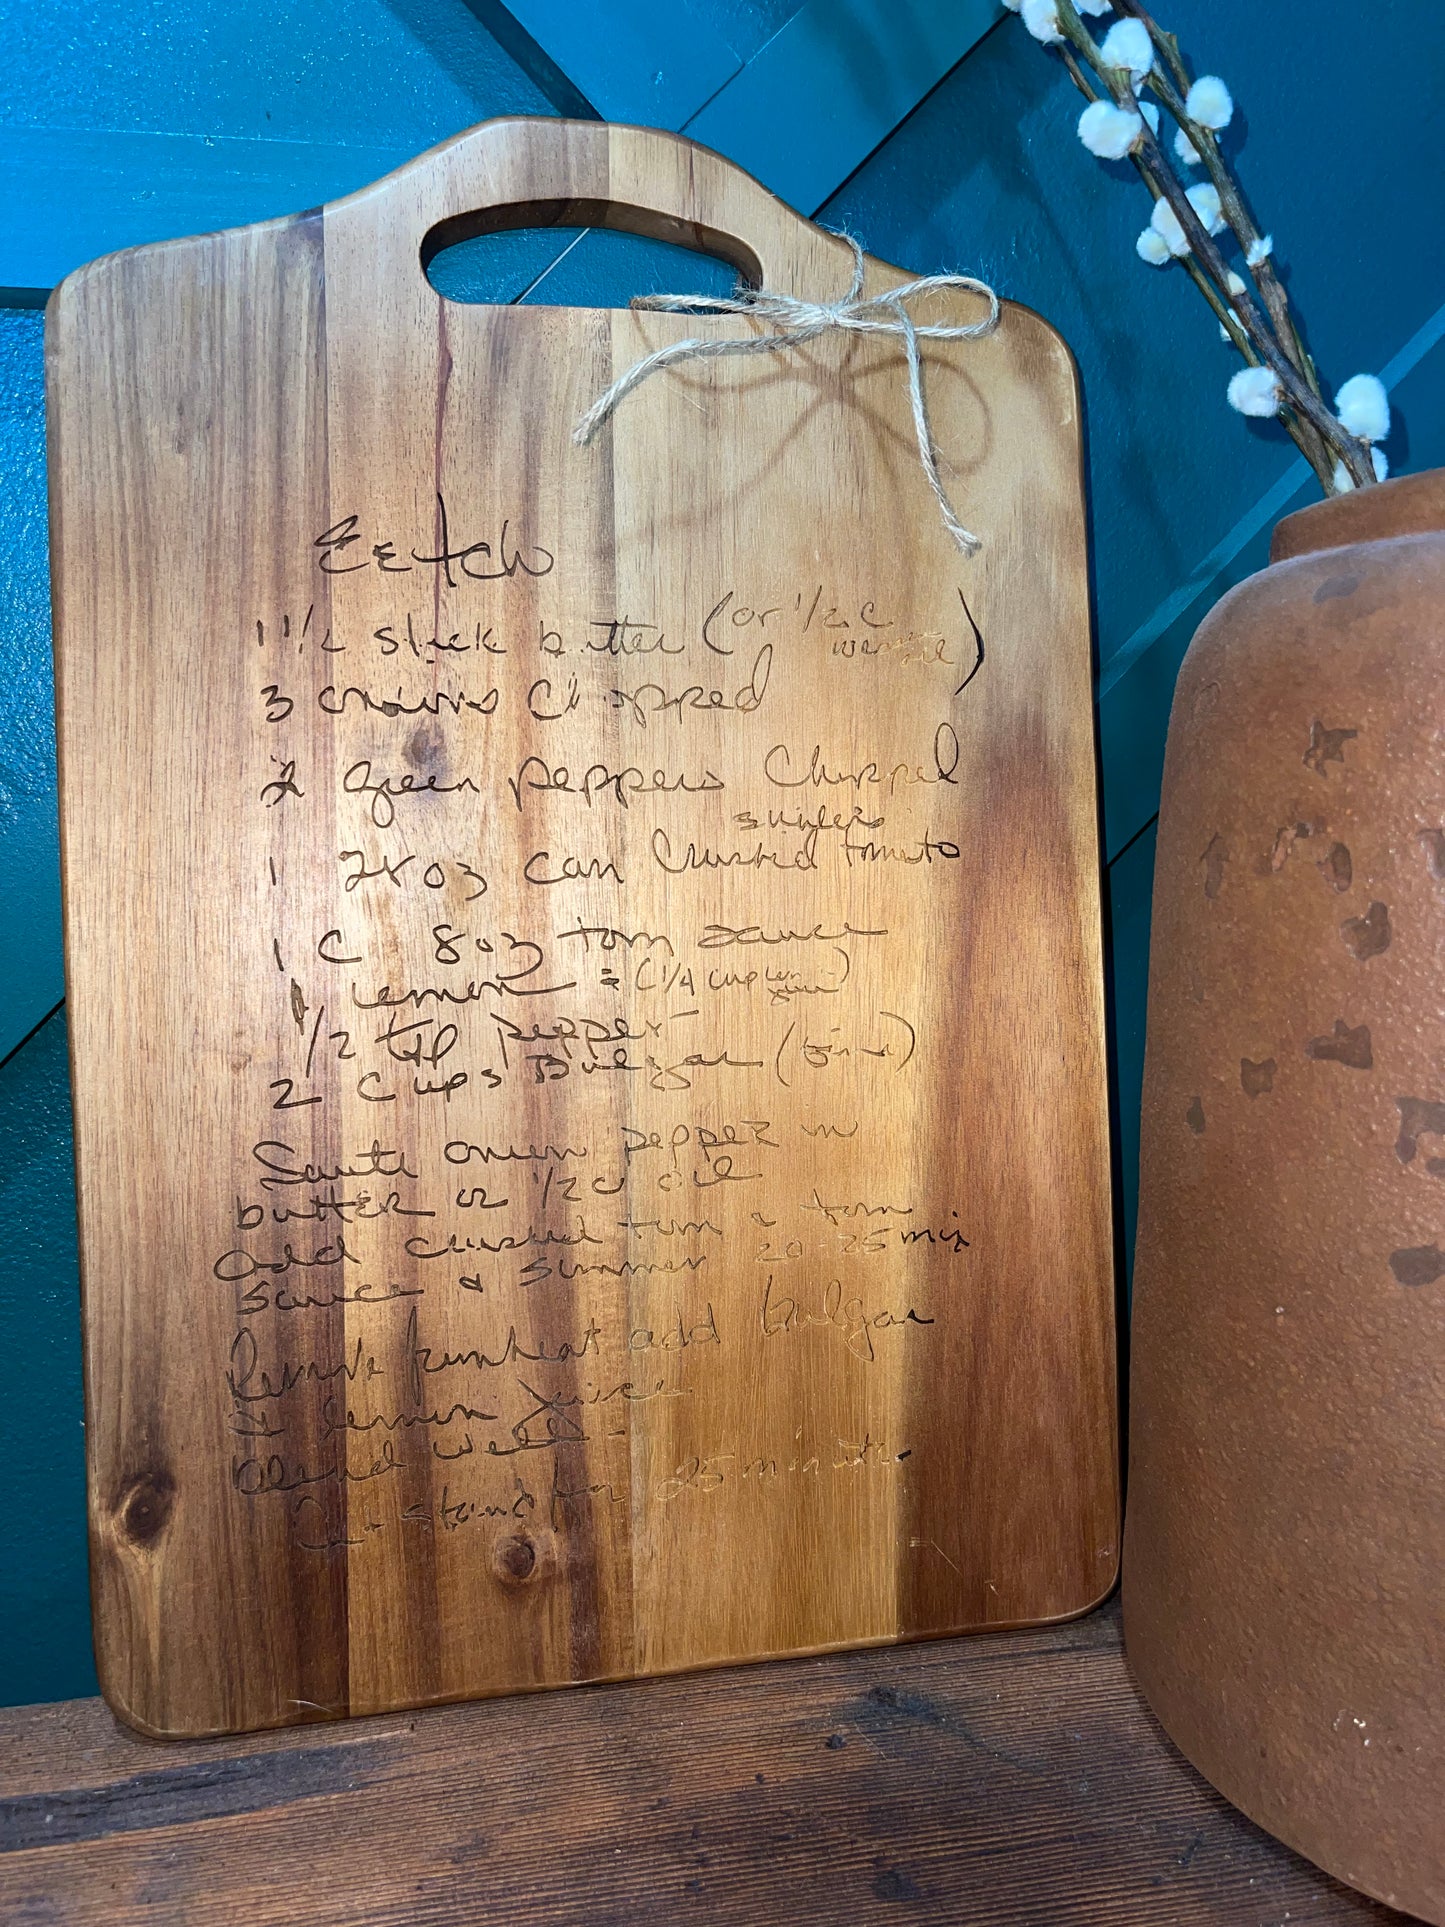 Eetch
1 1/2 stick butter (or 1/2 c
3 onions chopped
2 green peppers chopped
1 28 oz can crushed tomato
1 C 8 oz tom sauce
1 lemon = (1/4 cup
1/2 tsp pepper
2 cups Bulgar (fine)
Saute onion pepper in
butter or 1/2 c oil
add crushed tom & tom
sauce & simmer 20-25 min
Remove from heat add bulgar
& lemon juice
blend well -
stand for 25 minutes